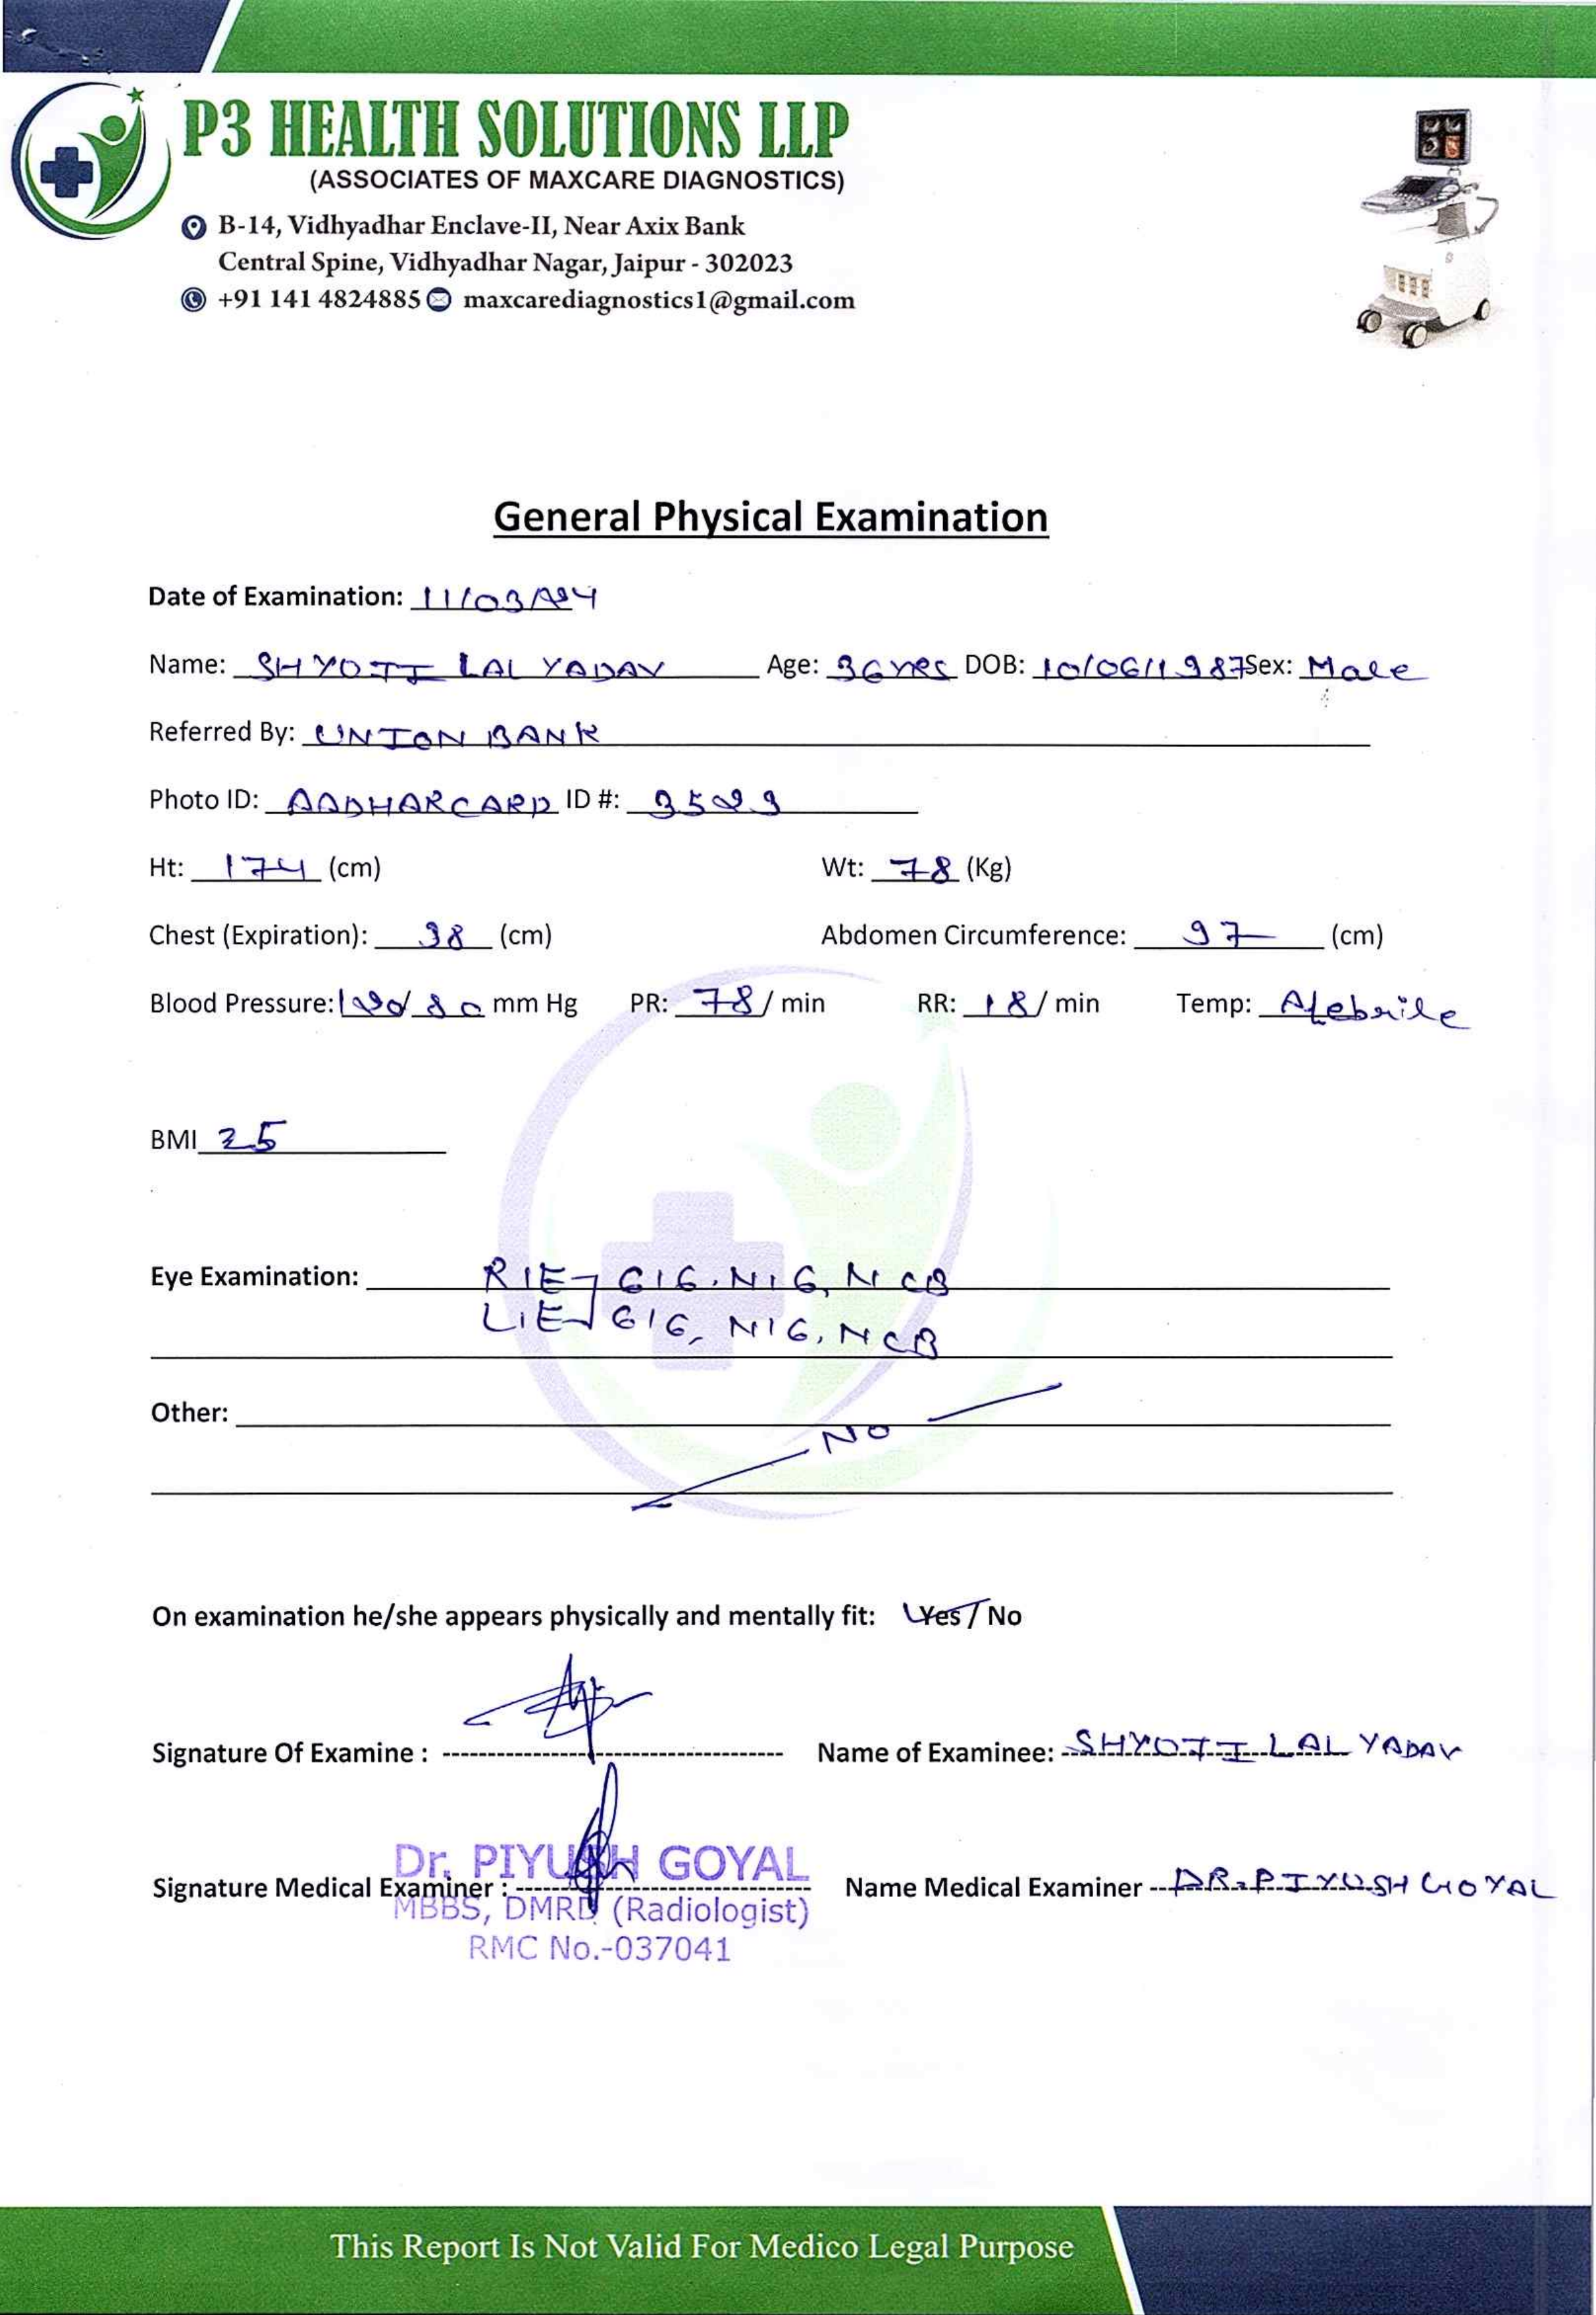 P3 HEALTH SOLUTIONS LLP
(ASSOCIATES OF MAXCARE DIAGNOSTICS)
B-14, Vidhyadhar Enclave-II, Near Axix Bank
Central Spine, Vidhyadhar Nagar, Jaipur - 302023
+91 141 4824885 maxcarediagnostics1@gmail.com
General Physical Examination
Date of Examination: 11/03/24
Name: SHYOJI LAL YADAV Age: 36 YRS DOB: 10/06/1987 Sex: Male
Referred By: UNION BANK
Photo ID: AADHARCARD ID #: 3529
Ht: 174 (cm) Wt: 78 (Kg)
Chest (Expiration): 38 (cm) Abdomen Circumference: 97 (cm)
Blood Pressure: 120/80 mm Hg PR: 78/ min RR: 18/ min Temp: Afebrile
BMI 25
Eye Examination: R/E- 6/6, N/6, NCB
L/E- 6/6, N/6, NCB
Other:
NO
On examination he/she appears physically and mentally fit: Yes / No
Signature Of Examine : Name of Examinee: SHYOJI LAL YADAV
Dr. PIYUSH GOYAL
Signature Medical Examiner : Name Medical Examiner DR. PIYUSH GOYAL
MBBS, DMRD (Radiologist)
RMC No.-037041
This Report Is Not Valid For Medico Legal Purpose